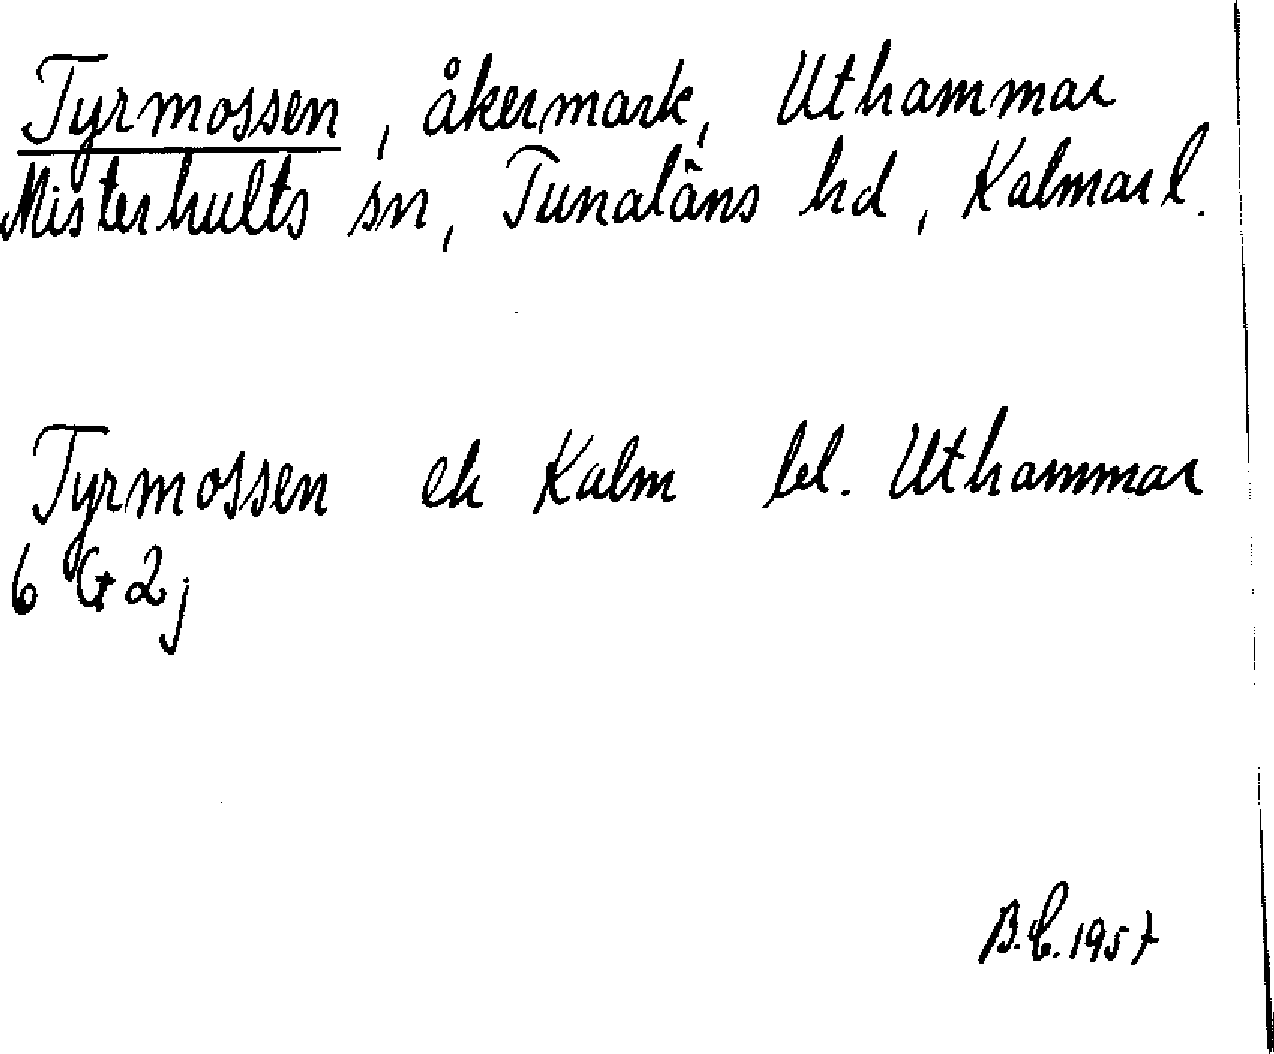 Tyrmossen, åkermark, Uthammar
Misterhults sn, Tunaläns hd, Kalmar l.
Tyrmossen ek Kalm bl. Uthammar
6 G 2 j
B.C. 1957